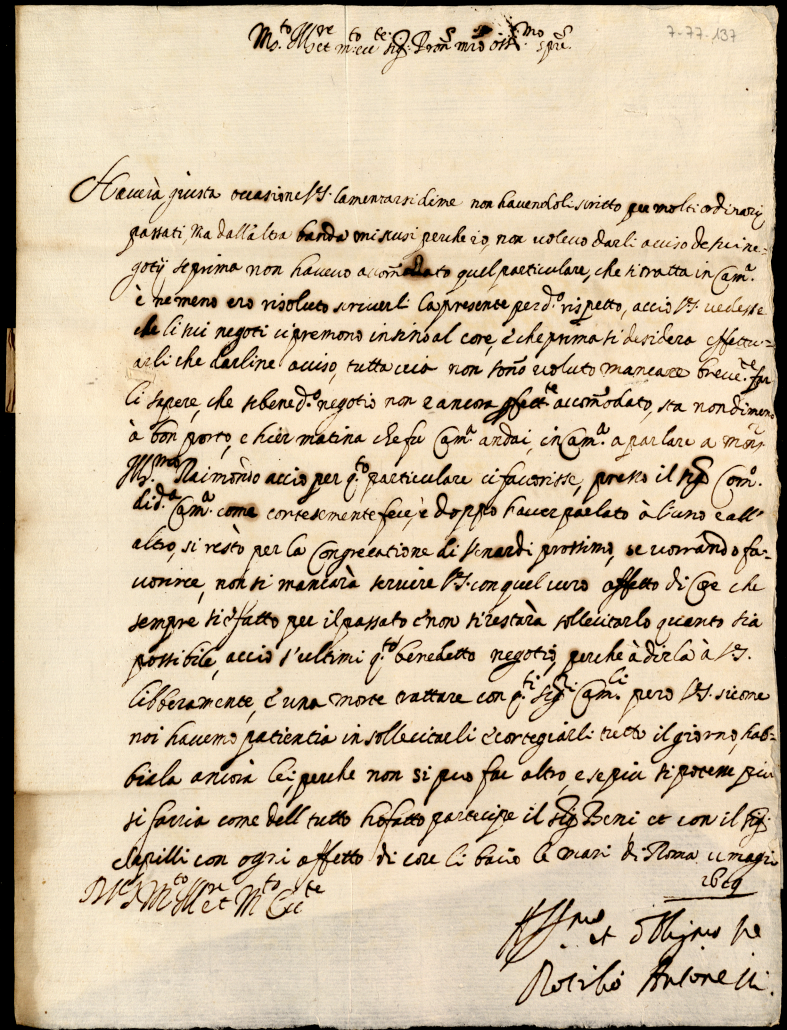 7-77.137
M.to Ill.re et m. ecc.te Sig.r Pron mio oss.mo
Haverà giusta occasione V.S. lamentarsi di me non havendoli scritto per molti ordinarij
passati, Ma dall'altra banda mi scusi perche io non volevo darli aviso de suoi ne=
gotij se prima non havevo accomodato quel particulare, che si tratta in Cam.a
è ne meno ero risoluto scriverli la presente per d.o rispetto, accio V.S. vedesse
che li sui negoti ci premono insino al core, è che prima si desidera effettu=
arli che darline aviso, tutta via non sono voluto mancare breve.te far
li sapere, che sebene d.o negotio non è ancora accomodato, sta nondimeno
à bon porto, e hier matina che fu Cam.a andai in Cam.a a parlare a Mons.r
Ill.mo Raimondo accio per q.to particulare ci favorisse, presso il Sig.r Com.o
di d.a Cam.a come cortesemente fece, è doppo haver parlato à l'uno e all'
altro, si restò per la Congregatione di Venardi prossimo, se vorrando fa=
vorirce, non si mancarà servire V.S. con quel vero affetto di Core che
sempre si è fatto per il passato è non si restarà sollecitarlo quanto sia
possibile, accio s'ultimi q.to benedetto negotio, perche à dirla à V.S.
libberamente, è una morte trattare con q.ti Sig.ri Cam.li però V.S. sicome
noi havemo patientia in sollecitarli è cortegiarli tutto il giorno, hab=
biala ancora lei, perche non si puo far altro, e se più si potesse più
si faria come dell tutto ho fatto partecipe il Sig.r Beni, et con il Sig.r
Clapilli con ogni affetto di core li bacio le mani di Roma
D V.S. M.to Ill.re et M.to Ecc.te
Aff.mo et obblig.mo se.re
Antonelli